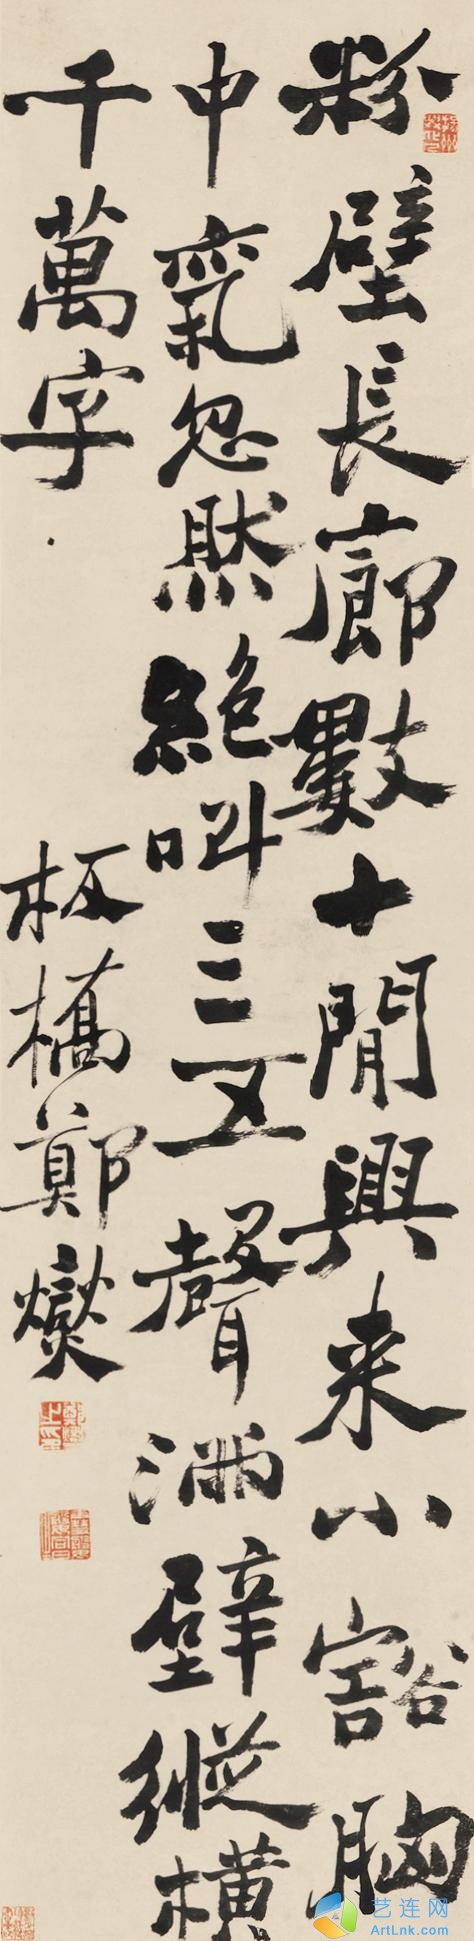 粉壁長廊數十間興來小豁胸
中氣忽然絕叫三五聲滿壁縱橫
千萬字
板橋鄭燮
艺连网
ArtLnk.com